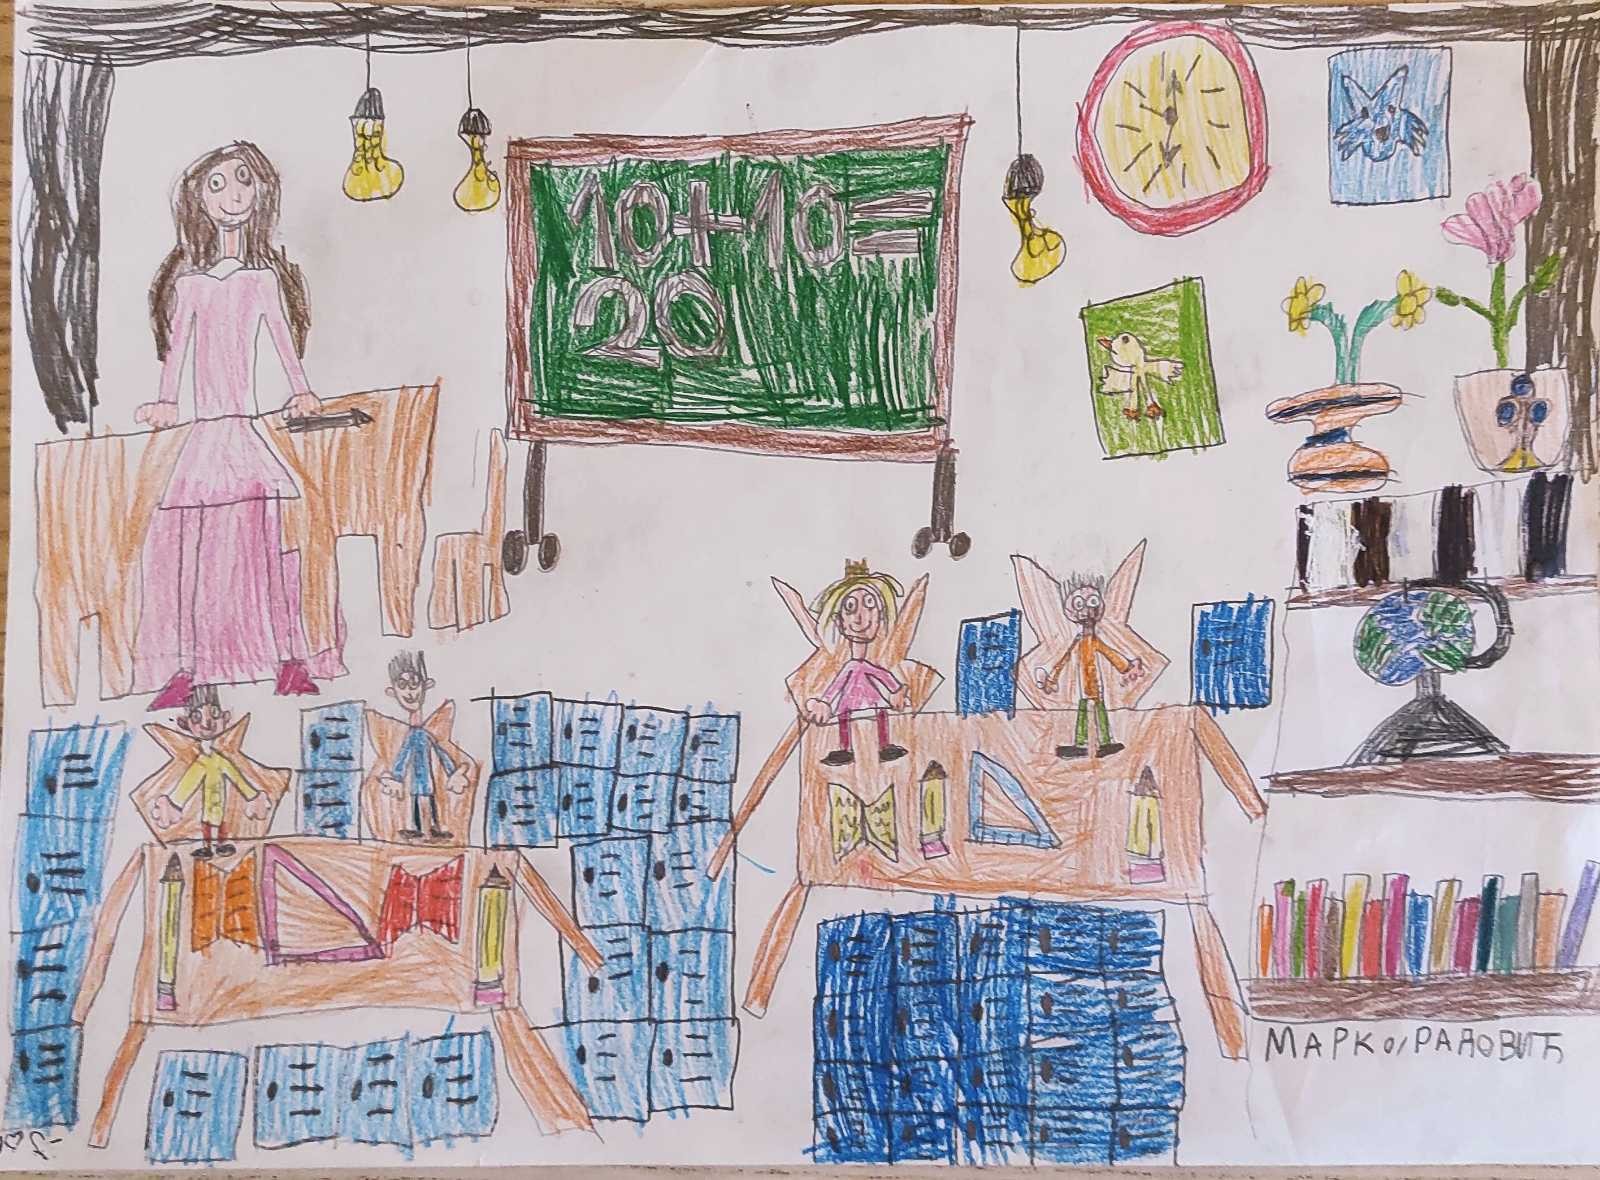 10+10=
20
МАРКО РАДОВИЋ